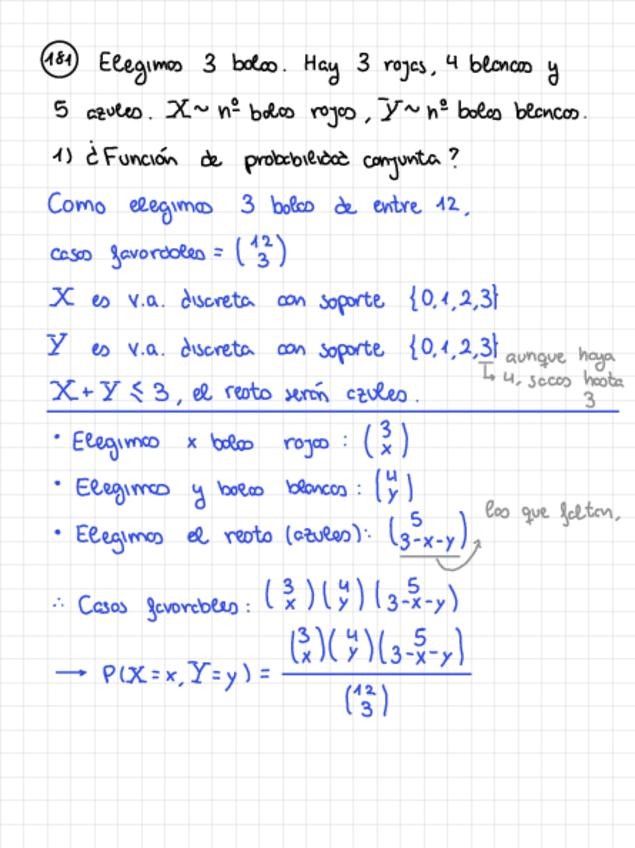 181 Elegimos 3 bolas. Hay 3 rojas, 4 blancas y
5 azules. X ~ nº bolas rojas, Y ~ nº bolas blancas.
1) ¿Función de probabilidad conjunta?
Como elegimos 3 bolas de entre 12,
casos favorables = (12 3)
X es v.a. discreta con soporte {0,1,2,3}
Y es v.a. discreta con soporte {0,1,2,3}
↳ aunque haya
4, sacas hasta
3
X + Y ≤ 3, el resto serán azules.
• Elegimos x bolas rojas: (3 x)
• Elegimos y bolas blancas: (4 y)
• Elegimos el resto (azules): (5 3-x-y)
las que faltan,
∴ Casos favorables: (3 x)(4 y)(5 3-x-y)
→ P(X=x, Y=y) = (3 x)(4 y)(5 3-x-y)
(12 3)